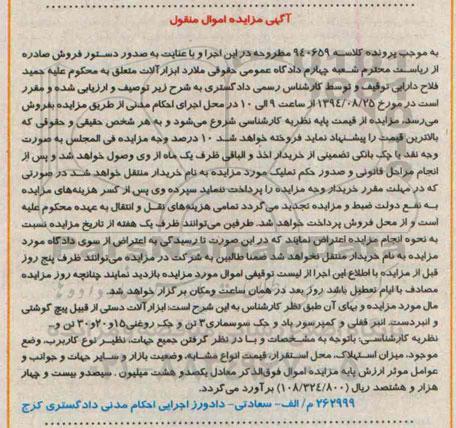 آگهی مزایده اموال منقول
به موجب پرونده کلاسه ۹۴۰۶۵۹ مطروحه در این اجرا و با عنایت به صدور دستور فروش صادره
از ریاست محترم شعبه چهارم دادگاه عمومی حقوقی ملارد ابزارآلات متعلق به محکوم علیه حمید
فلاح دارابی توقیف و توسط کارشناس رسمی دادگستری به شرح زیر توصیف و ارزیابی شده و مقرر
است در مورخ ۱۳۹۴/۰۸/۲۵ از ساعت ۹ الی ۱۰ در محل اجرای احکام مدنی از طریق مزایده بفروش
می‌رسد، مزایده از قیمت پایه نظریه کارشناسی شروع می‌شود و به هر شخص حقیقی و حقوقی که
بالاترین قیمت را پیشنهاد نماید فروخته خواهد شد. ۱۰ درصد وجه مزایده فی المجلس به صورت
وجه نقد یا چک بانکی تضمینی از خریدار اخذ و الباقی ظرف یک ماه از وی وصول خواهد شد و پس از
انجام مراحل قانونی و صدور حکم تملیک مورد مزایده به نام خریدار منتقل خواهد شد. در صورتی
که در مهلت مقرر خریدار وجه مزایده را پرداخت ننماید سپرده وی پس از کسر هزینه‌های مزایده
به نفع دولت ضبط و مزایده تجدید می‌گردد تمامی هزینه‌های نقل و انتقال به عهده محکوم علیه
است و از محل فروش پرداخت خواهد شد. طرفین می‌توانند ظرف یک هفته از تاریخ مزایده نسبت
به نحوه انجام مزایده اعتراض نمایند که در این صورت تا رسیدگی به اعتراض از سوی دادگاه مورد
مزایده به نام خریدار منتقل نخواهد شد ضمنا طالبین به شرکت در مزایده می‌توانند ظرف پنج روز
قبل از مزایده با اطلاع این اجرا از لیست توقیفی اموال مورد مزایده بازدید نمایند چنانچه روز مزایده
مصادف با ایام تعطیل باشد روز بعد در همان ساعت ومکان برگزار خواهد شد.
مال مورد مزایده و بهای آن طبق نظر کارشناس به این شرح است: ابزارآلات دستی از قبیل پیچ گوشتی
و انبردست، انبر قفلی و کمپرسور باد و جک سوسماری ۳ تن و جک روغنی ۱۵ و ۲۰ و ۳۰ تن و
نظریه کارشناسی: باتوجه به مشخصات و با در نظر گرفتن جمیع جهات، نظیر نوع کاربرب، وضع
موجود، میزان استهلاک، محل استقرار، قیمت انواع مشابه، وضعیت بازار و سایر جهات و جوانب و
عوامل موثر ارزش پایه مزایده اموال فوق‌الذکر معادل یکصد و هشت میلیون . سیصدو بیست و چهار
هزار و هشتصد ریال (۱۰۸/۳۲۴/۸۰۰) برآورد می‌گردد.
۲۶۲۹۹۹ م/ الف- سعادتی- دادورز اجرایی احکام مدنی دادگستری کرج